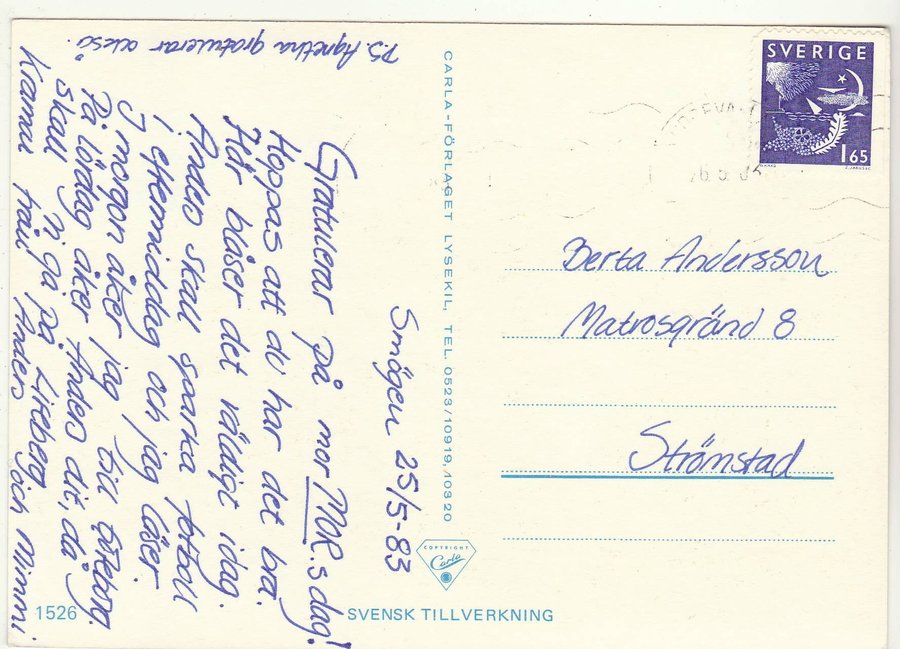 Smögen 25/5-83
Gratulerar på mor MOR.s dag!
Hoppas att du har det bra.
Här bläser det väldigt idag.
Anders skall sparka fotboll
i eftermiddag och jag läser.
I morgon åker jag till Göteborg.
På lördag åker Anders dit, då
skall vi gå på Liseberg
Kramar från Anders och Mimmi
P.S. Agnetha gratulerar också.
CARLA-FÖRLAGET LYSEKIL, TEL. 0523/10919, 10320
COPYRIGHT
Carla
1526
SVENSK TILLVERKNING
SVERIGE
1 65
Berta Andersson
Matrosgränd 8
Strömstad